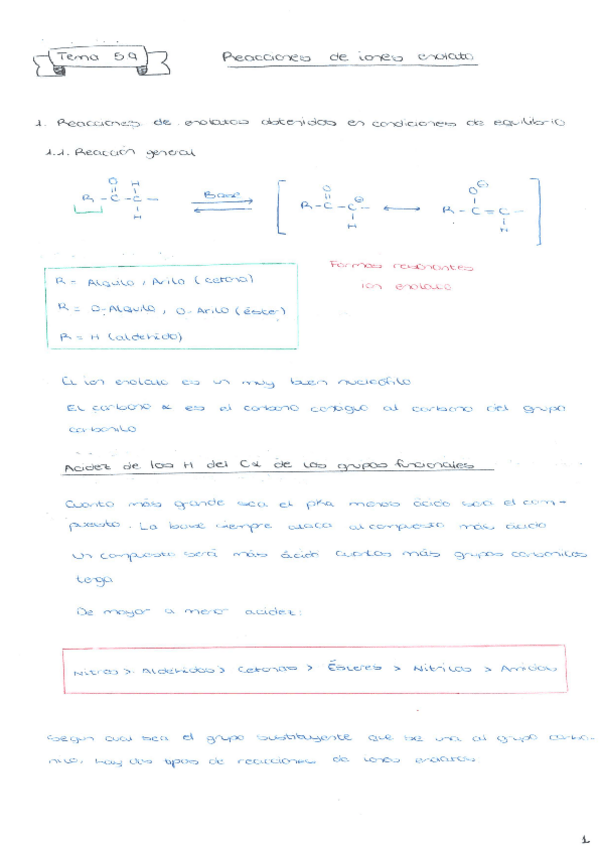 Tema 5A
Reacciones de iones enolato
1. Reacciones de enolatos obtenidos en condiciones de equilibrio
1.1. Reacción general
O H
R - C - C - Base R - C - C - R - C = C -
H H H
R = Alquilo, Arilo (cetona)
R = O-Alquilo, O-Arilo (éster)
R = H (aldehído)
Formas resonantes
ion enolato
El ion enolato es un muy buen nucleófilo
El carbono α es el carbono contiguo al carbono del grupo
carbonilo
Acidez de los H del Cα de los grupos funcionales
Cuanto más grande sea el pKa menos ácido sea el com-
puesto. La base siempre ataca al compuesto más ácido
Un compuesto será más ácido cuantos más grupos carbonilos
tenga
De mayor a menor acidez:
Nitros > Aldehídos > Cetonas > Ésteres > Nitrilos > Amidas
Según cual sea el grupo sustituyente que se una al grupo carbo-
nilo, hay dos tipos de reacciones de iones enolatos
1